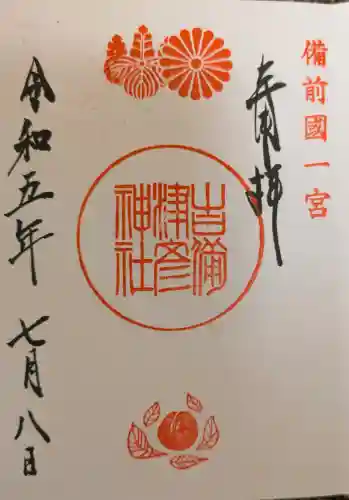 備前國一宮
奉拝
吉備
津彦
神社
令和五年 七月八日